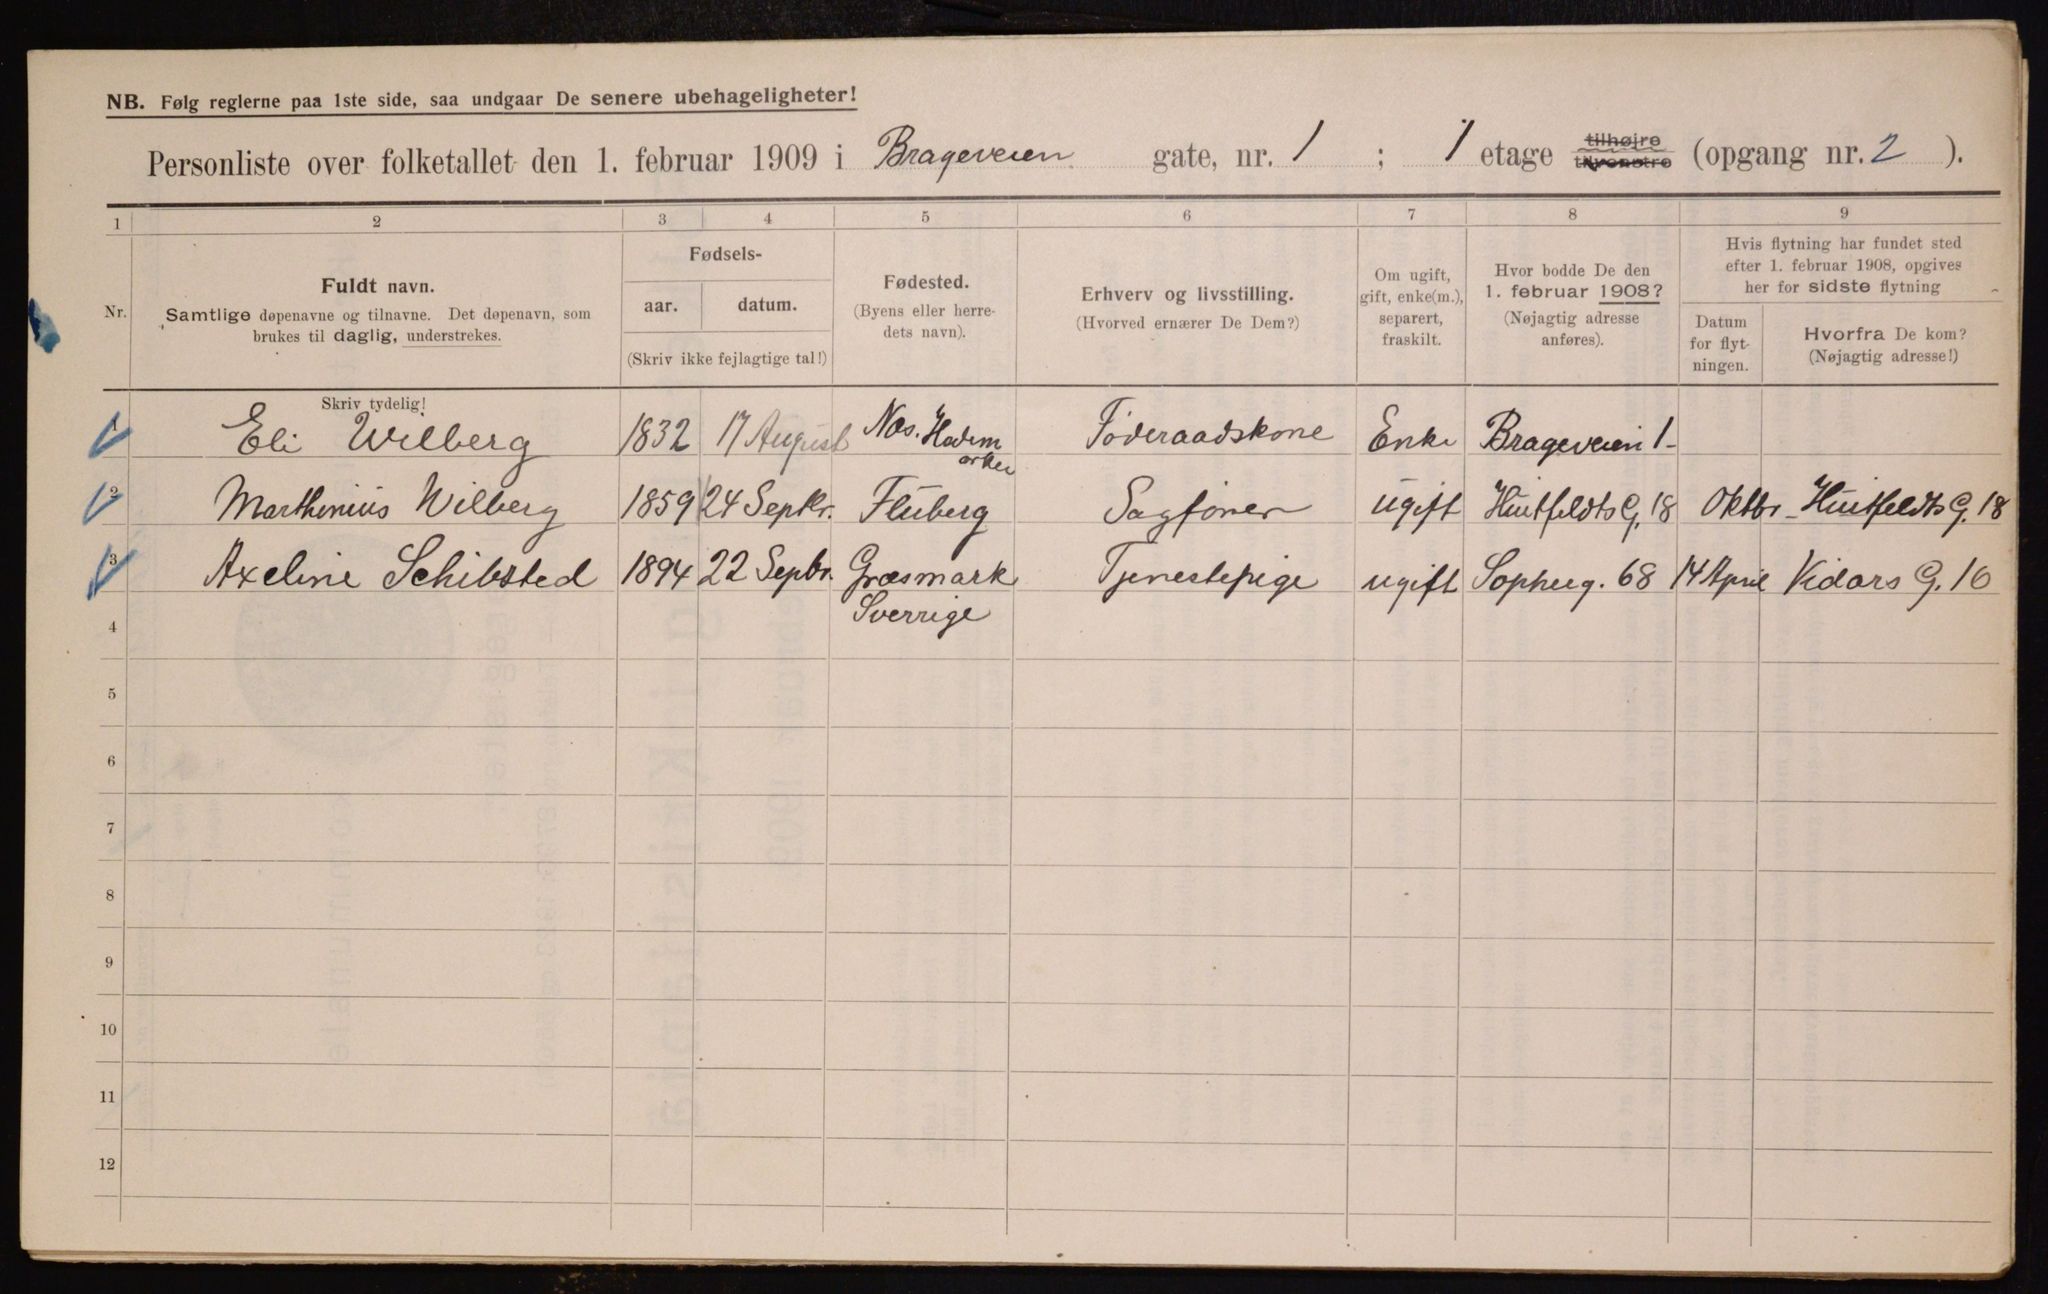 NB. Følg reglerne paa 1ste side, saa undgaar De senere ubehageligheter!
Personliste over folketallet den 1. februar 1909 i Brageveien gate, nr. 1 ; 1 etage tilhøjre tilvenstre (opgang nr. 2 ).
1 2 3 4 5 6 7 8 9
Nr.
Fuldt navn.
Samtlige døpenavne og tilnavne. Det døpenavn, som
brukes til daglig, understrekes.
Skriv tydelig!
Fødsels-
aar. datum.
(Skriv ikke fejlagtige tal!)
Fødested.
(Byens eller herre-
dets navn).
Erhverv og livsstilling.
(Hvorved ernærer De Dem?)
Om ugift,
gift, enke(m.),
separert,
fraskilt.
Hvor bodde De den
1. februar 1908?
(Nøjagtig adresse
anføres).
Hvis flytning har fundet sted
efter 1. februar 1908, opgives
her for sidste flytning
Datum
for flyt-
ningen.
Hvorfra De kom?
(Nøjagtig adresse!)
1 Eli Wilberg 1832 17 August Næs. Hedem
arken Føderaadskone Enke Brageveien 1
2 Marthinius Wilberg 1859 24 Septbr. Fluberg Sagfører ugift Huitfeldts G. 18 Oktbr Huitfeldts G. 18
3 Axeline Schibsted 1894 22 Sepbr. Græsmark Tjenestepige ugift Sophieg. 68 14 April Vidars G. 16
4 Sverrige
5
6
7
8
9
10
11
12